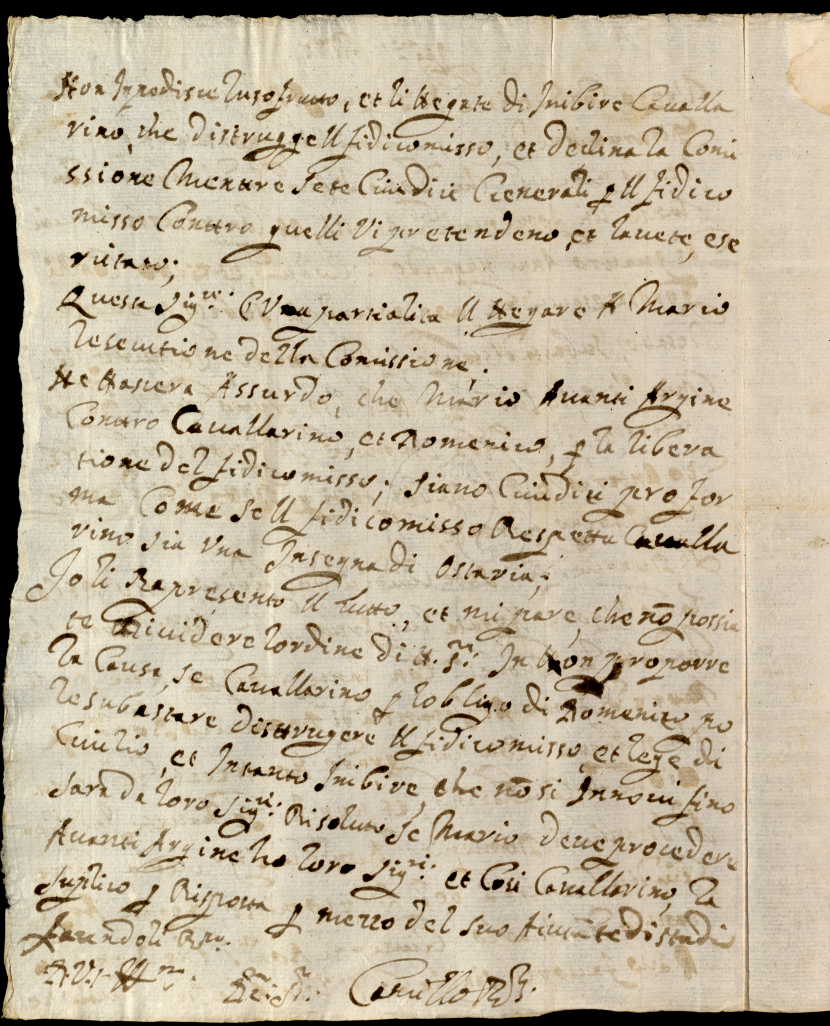 Non Impedisce lusofrutto, et li Negate di Inibire Cavalla
rino, che distrugge Il fidicomisso, et declina la Comi
ssione Mentre sete Giudici Generali p Il fidico
misso Contro quelli Vi pretendeno, et lavete, ese
cutato;
Questa Sig.re: E Una partialita Il Negare A Mario
lesecutione della Comissione.
Ne Nascera Assurdo, che Mario Avanti Argine
Contro Cavallarino, et Domenico, p la libera
tione del fidicomisso; siano Giudici pro for
ma Come se Il fidicomisso Respetto Cavalla
rino sia Una Insegna di Ostaria;
Io li Rapresento Il tutto, et mi pare, che nō possia
te dividere lordine di N. S.re: In Non proporre
la Causa, se Cavallarino p lobligo di Domenico po
le subastare distrugere Il fidicomisso, et lege di
Giulio, et Intanto Inibire, che nō si Innovi fino
sara da loro Sig.ri: Risoluto se Mario deve procedere
Avanti Argine ho loro Sig.ri: et Cosi Cavallarino, la
suplico p Risposta p mezzo del suo Aiutāte di studio
facendoli Rev.
D. V. S. Ill.ma:
Camillo